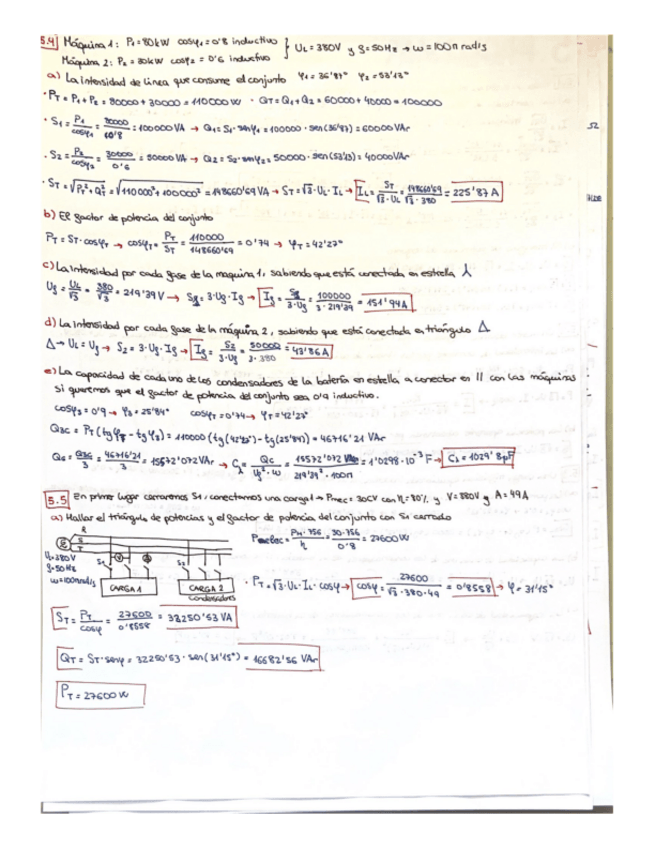 5.4 Máquina 1: P₁=80kW cosφ₁=0'8 inductivo } UL=380V y f=50Hz → ω=100π rad/s
Máquina 2: P₂=30kW cosφ₂=0'6 inductivo
a) La intensidad de línea que consume el conjunto φ₁=36'87° φ₂=53'13°
· PT=P₁+P₂=80000+30000=110000W · QT=Q₁+Q₂=60000+40000=100000
· S₁=P₁/cosφ₁=80000/0'8=100000VA → Q₁=S₁·senφ₁=100000·sen(36'87)=60000VAr
52
· S₂=P₂/cosφ₂=30000/0'6=50000VA → Q₂=S₂·senφ₂=50000·sen(53'13)=40000VAr
· ST=√(PT²+QT²)=√(110000²+100000²)=148660'69VA → ST=√3·UL·IL → IL=ST/(√3·UL)=148660'69/(√3·380)=225'87A
b) El factor de potencia del conjunto
PT=ST·cosφT → cosφT=PT/ST=110000/148660'69=0'74 → φT=42'27°
c) La intensidad por cada fase de la maquina 1, sabiendo que está conectada en estrella ⅄
Uf=UL/√3=380/√3=219'39V → Sf=3·Uf·If → If=Sf/(3·Uf)=100000/(3·219'39)=151'94A
d) La intensidad por cada fase de la máquina 2, sabiendo que esta conectada en triángulo Δ
Δ→UL=Uf → S₂=3·Uf·If → If=S₂/(3·Uf)=50000/(3·380)=43'86A
e) La capacidad de cada uno de los condensadores de la batería en estella a conectar en II con las máquinas
si queremos que el factor de potencia del conjunto sea 0'9 inductivo.
cosφ₃=0'9 → φ₃=25'84° cosφT=0'74 → φT=42'27°
Q3C=PT(tgφT-tgφ₃)=110000(tg(42'27°)-tg(25'84))=46716'21 VAr
QC=Q3C/3=46716'21/3=15572'072VAr → C⅄=QC/(Uf²·ω)=15572'072/(219'39²·100π)=1'0298·10⁻³F → C⅄=1029'8µF
5.5 En primer lugar cerraremos S1, conectamos una carga 1 → Pmec=30CV con η=80% y V=380V y A=49A
a) Hallar el triángulo de potencias y el factor de potencia del conjunto con S1 cerrado
R
S
T
UL=380V
f=50Hz
ω=100π rad/s
S1
S2
CARGA 1
CARGA 2
Condensadores
Pm·736/η=30·736/0'8=27600W
· PT=√3·UL·IL·cosφ → cosφ=27600/(√3·380·49)=0'8558 → φ=31'15°
ST=PT/cosφ=27600/0'8558=32250'53VA
QT=ST·senφ=32250'53·sen(31'15°)=16682'56 VAr
PT=27600W